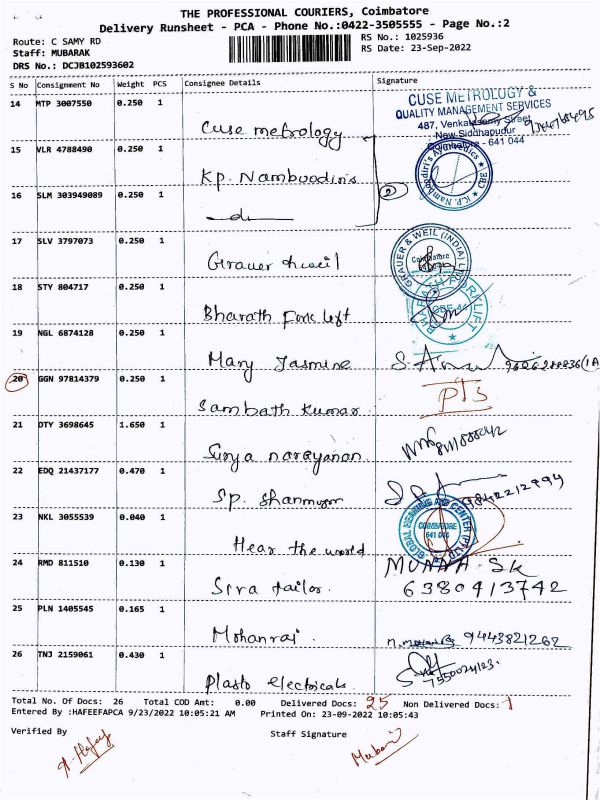 THE PROFESSIONAL COURIERS, Coimbatore
Delivery Runsheet - PCA - Phone No.:0422-3505555 - Page No.:2
Route: C SAMY RD
RS No.: 1025936
Staff: MUBARAK
RS Date: 23-Sep-2022
DRS No.: DCJB102593602
S No Consignment No Weight PCS Consignee Details Signature
14 MTP 3007550 0.250 1
Cuse metrology
CUSE METROLOGY &
QUALITY MANAGEMENT SERVICES
487, Venkatasamy Street
New Siddhapudur
Coimbatore - 641 044
15 VLR 4788490 0.250 1
K.p. Namboodiris
K.P. Namboodiri's Ayurvedics
CBE
16 SLM 303949089 0.250 1
2
17 SLV 3797073 0.250 1
Grauer & weil
GRAUER & WEIL (INDIA) LTD
Coimbatore
18 STY 804717 0.250 1
Bharath Fork lift
19 NGL 6874128 0.250 1
Mary Jasmine
20 GGN 97814379 0.250 1
Sambath Kumar
PTS
21 DTY 3698645 1.650 1
Surya narayanan
22 EDQ 21437177 0.470 1
Sp. Shanmugam
9842212994
23 NKL 3055539 0.040 1
Hear the world
GLOBAL HEARING AID CENTER (P) LTD
COIMBATORE
641 044
24 RMD 811510 0.130 1
Siva tailor.
MUNNA SK
6380413742
25 PLN 1405545 0.165 1
Mohanraj.
9443821262
26 TNJ 2159061 0.430 1
Plasto electricals
7550024123.
Total No. Of Docs: 26 Total COD Amt: 0.00 Delivered Docs: 25 Non Delivered Docs: 1
Entered By :HAFEEFAPCA 9/23/2022 10:05:21 AM Printed On: 23-09-2022 10:05:43
Verified By Staff Signature